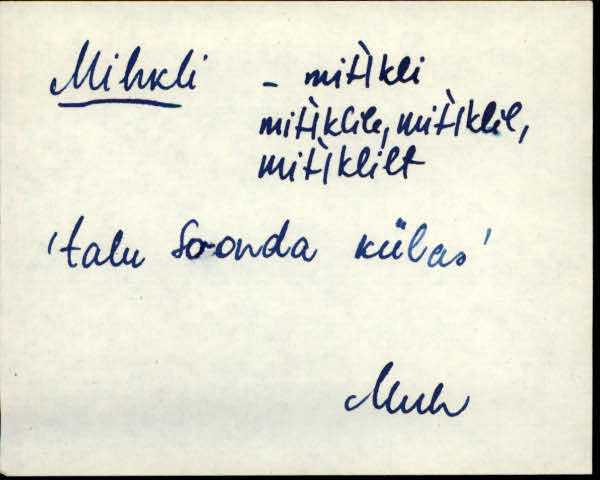 Mihkli – miʜ̀kli
miʜ̀klile, miʜ̀klil,
miʜ̀klilt
'talu Soonda külas'
Muh